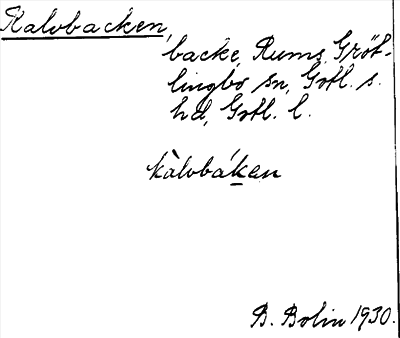 Kalvbacken,
backe, Rums, Gröt-
lingbo sn, Gotl. s.
hd, Gotl. l.
kàlvbáken
B. Bolin 1930.